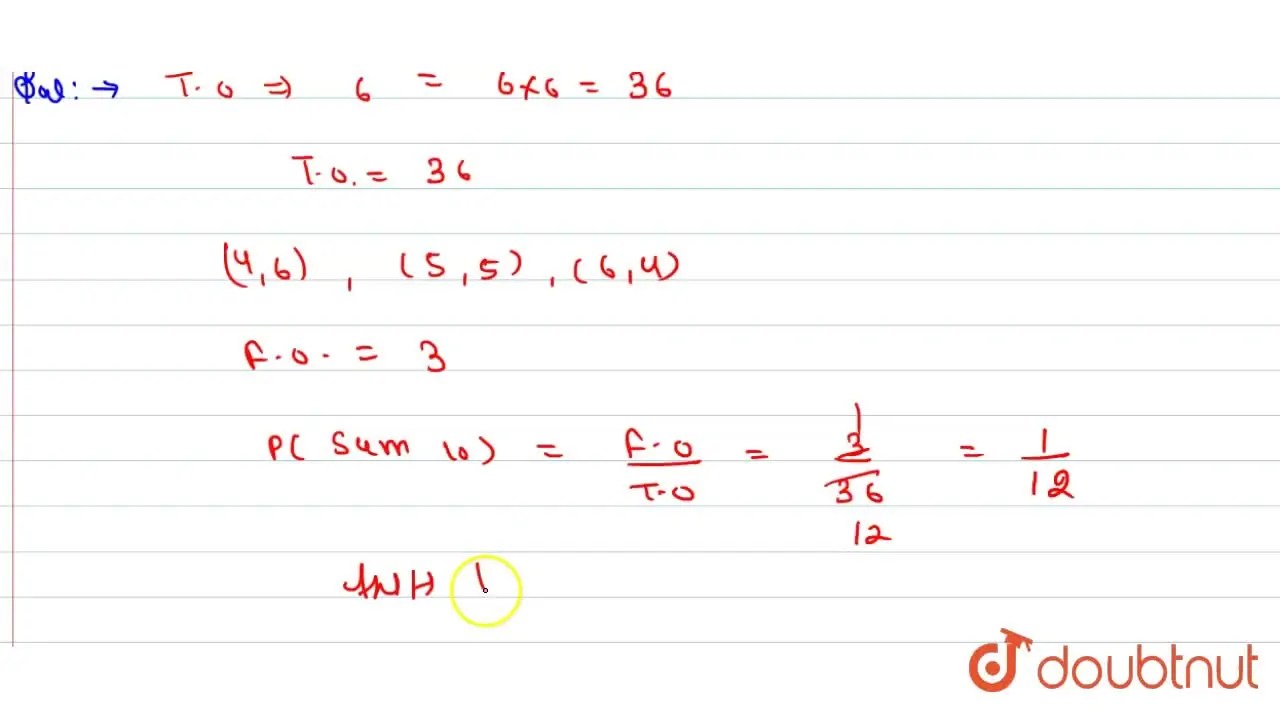 Sol: → T.O ⇒ 6 = 6×6 = 36
T.O. = 36
(4,6) , (5,5) , (6,4)
F.O. = 3
P( Sum 10) = F.O/T.O = 3/36 = 1/12
1
12
1
doubtnut